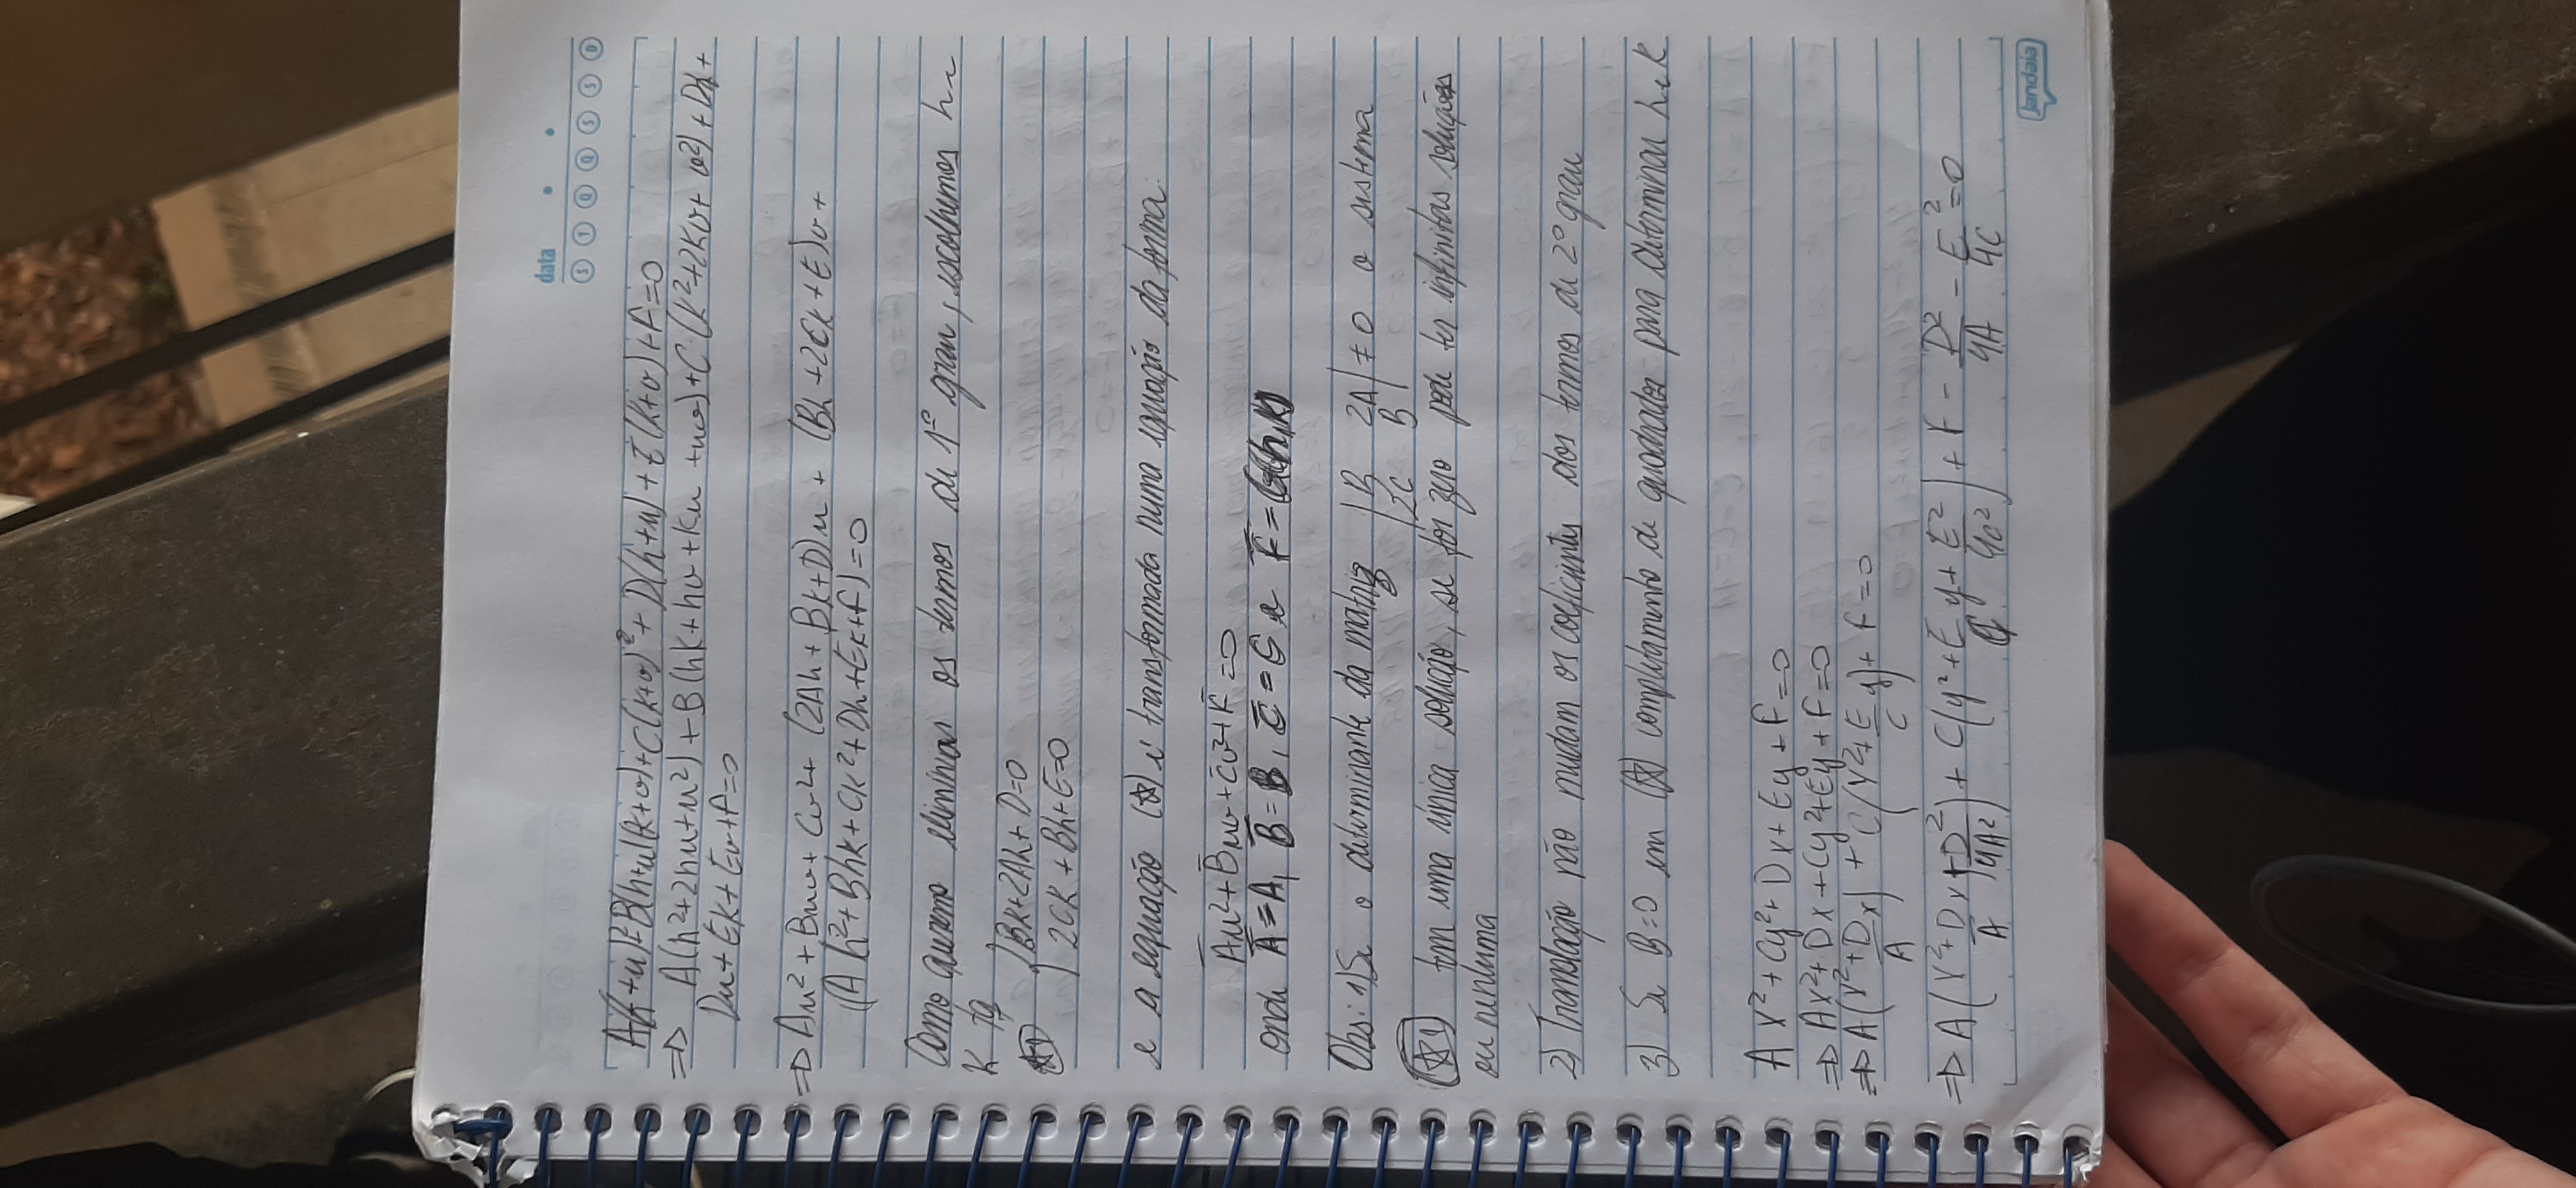 data
S T Q Q S S D
A(h+u)²+B(h+u)(k+v)+C(k+v)²+D(h+u)+E(k+v)+F=0
⇒ A(h²+2hu+u²)+B(hk+hv+ku+uv)+C(k²+2kv+v²)+Dh+
Du+Ek+Ev+F=0
⇒ Au²+Buv+Cv²+(2Ah+Bk+D)u+(Bh+2Ck+E)v+
(Ah²+Bhk+Ck²+Dh+Ek+F)=0
Como quermo eliminar os termos de 1º grau, escolhemos h e
k tq
(☆1) { Bk+2Ah+D=0
2Ck+Bh+E=0
e a equação (☆) é transformada numa equação da forma:
A̅u²+B̅uv+C̅v²+F̅=0
onde A̅=A, B̅=B, C̅=C e F̅=G(h,k)
Obs: 1) Se o determinante da matriz |B 2A| ≠ 0 o sistema
|2C B|
(☆1) tem uma única solução, se for zero pode ter infinitas soluções
ou nenhuma
2) Translação não mudam os coeficientes dos termos de 2º grau
3) Se B=0 em (☆) completamento de quadrados para determinar h e k
Ax²+Cy²+Dx+Ey+F=0
⇒ Ax²+Dx+Cy²+Ey+F=0
⇒ A(x²+D/A x)+C(y²+E/C y)+F=0
⇒ A(x²+D/A x+D²/4A²)+C(y²+E/C y+E²/4C²)+F-D²/4A-E²/4C=0
Jandaia